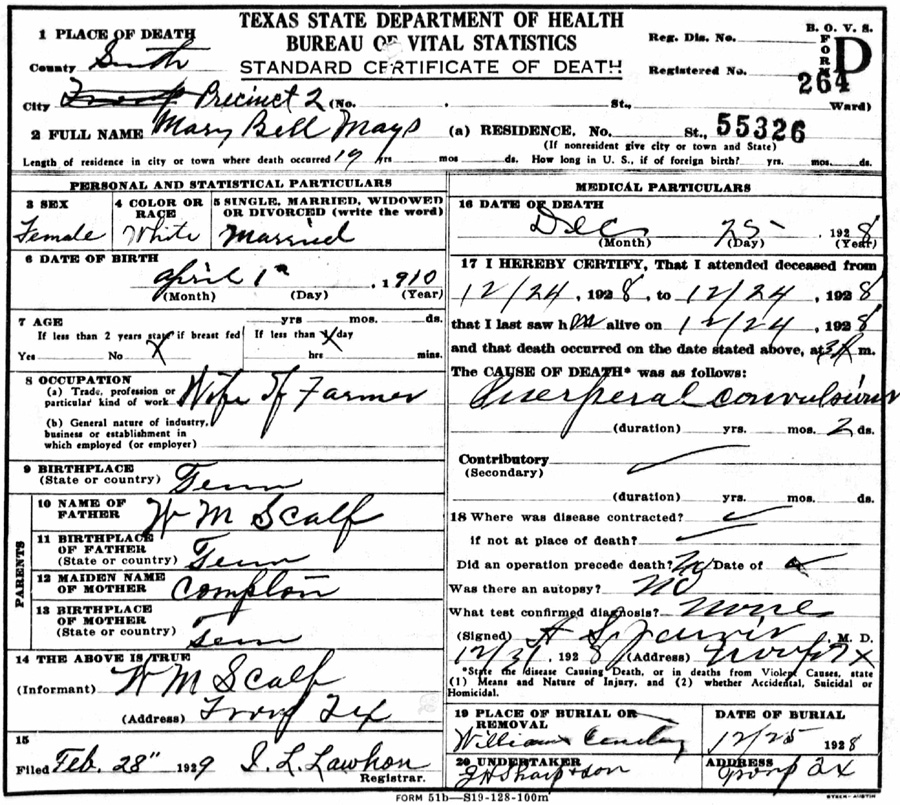 TEXAS STATE DEPARTMENT OF HEALTH
BUREAU OF VITAL STATISTICS
STANDARD CERTIFICATE OF DEATH
B. O. V. S.
FORM D
Reg. Dis. No.
Registered No. 264
1 PLACE OF DEATH
County Smith
City Troup Precinct 2 (No. St., Ward)
2 FULL NAME Mary Bell Mays (a) RESIDENCE, No. St., 55326
(If nonresident give city or town and State)
Length of residence in city or town where death occurred 19 yrs mos ds. How long in U. S., if of foreign birth? yrs. mos. ds.
PERSONAL AND STATISTICAL PARTICULARS
3 SEX Female
4 COLOR OR RACE White
5 SINGLE, MARRIED, WIDOWED OR DIVORCED (write the word) Married
6 DATE OF BIRTH
April 1 , 1910
(Month) (Day) (Year)
7 AGE yrs mos. ds.
If less than 2 years state if breast fed If less than 1 day
Yes No X hrs mins.
8 OCCUPATION
(a) Trade, profession or particular kind of work Wife of Farmer
(b) General nature of industry, business or establishment in which employed (or employer)
9 BIRTHPLACE
(State or country) Tenn
PARENTS
10 NAME OF FATHER W M Scalf
11 BIRTHPLACE OF FATHER
(State or country) Tenn
12 MAIDEN NAME OF MOTHER Complon
13 BIRTHPLACE OF MOTHER
(State or country) Tenn
14 THE ABOVE IS TRUE
(Informant) W M Scalf
(Address) Troup Tex
15
Filed Feb. 28" 1929 I. L. Lawhon
Registrar.
MEDICAL PARTICULARS
16 DATE OF DEATH
Dec 25 1928
(Month) (Day) (Year)
17 I HEREBY CERTIFY, That I attended deceased from
12/24, 1928, to 12/24, 1928
that I last saw her alive on 12/24, 1928
and that death occurred on the date stated above, at 3 A m.
The CAUSE OF DEATH* was as follows:
Puerperal convulsions
(duration) yrs. mos. 2 ds.
Contributory
(Secondary)
(duration) yrs. mos. ds.
18 Where was disease contracted?
if not at place of death?
Did an operation precede death? No Date of
Was there an autopsy? No
What test confirmed diagnosis? None
(Signed) M. D.
12/31, 1928 (Address) Troup Tx
*State the disease Causing Death, or in deaths from Violent Causes, state
(1) Means and Nature of Injury, and (2) whether Accidental, Suicidal or
Homicidal.
19 PLACE OF BURIAL OR REMOVAL
Williams Cemetery
DATE OF BURIAL
12/25 1928
20 UNDERTAKER
J H Sharp & son
ADDRESS
Troup Tx
FORM 51b—S19-128-100m